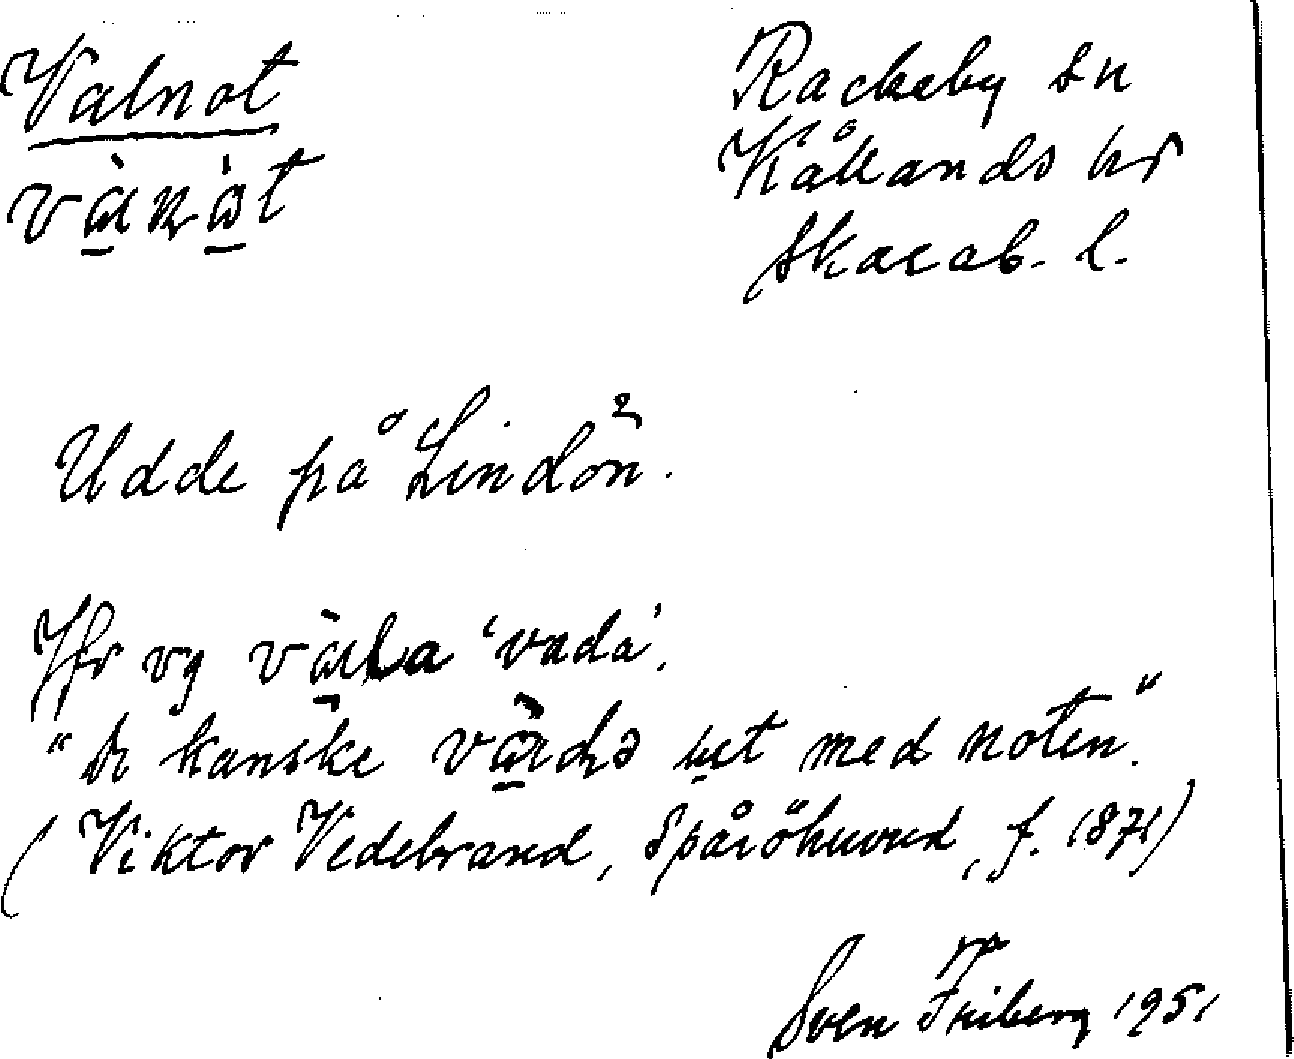 Valnot
Rackeby sn
Kållands hr
Skarab. l.
Udde på Lindön.
Jfr vg 'vada'.
"De kanske ut med noten."
(Viktor Vedebrand, Spåröhuvud, f. 1871)
Sven Friberg 1951